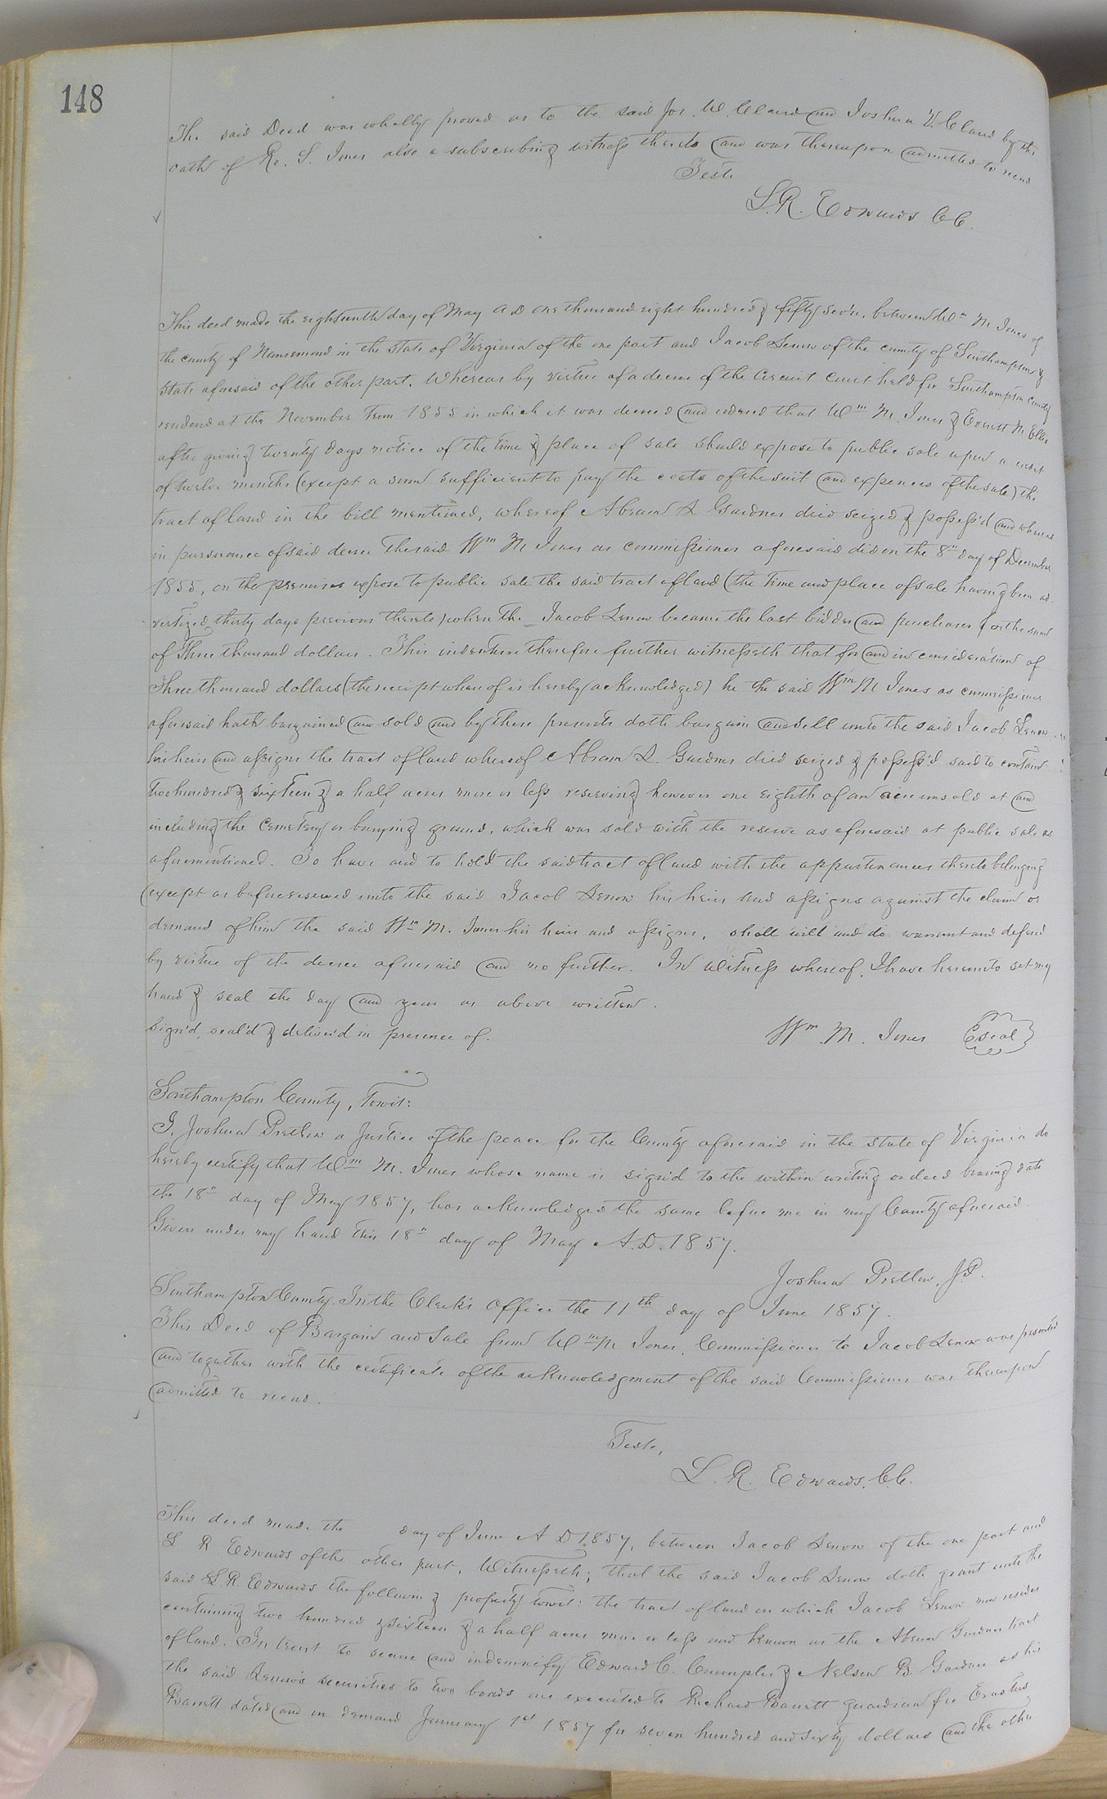 148
The said Deed was wholly proved as to the said Jos. W. Claud and Joshua V. Claud by the
oath of Ro. S. Jones also a subscribing witness thereto and was thereupon admitted to record
Teste
L. R. Edwards CC.
This deed made the eighteenth day of May AD one thousand eight hundred & fifty seven, between Wm M. Jones of
the county of Nansemond in the State of Virginia of the one part and Jacob Lenow of the county of Southampton &
State aforesaid of the other part. Whereas by virtue of a decree of the Circuit Court held for Southampton County
rendered at the November Term 1855 in which it was decreed and ordered that Wm M. Jones & Everett M. Ellis
after giving twenty days notice of the time & place of sale should expose to public sale upon a credit
of twelve months (except a sum sufficient to pay the costs of the suit and expences of the sale) the
tract of land in the bill mentioned, whereof Abram L Gardner died seized & possess'd and whereas
in pursuance of said decree the said Wm M Jones as commissioner aforesaid did on the 8th day of December
1855, on the premises expose to public sale the said tract of land (the time and place of sale having been ad
vertized thirty days previous thereto) when the Jacob Lenow became the last bidder and purchaser for the sum
of Three thousand dollars. This indenture therefore further witnesseth that for and in consideration of
Three thousand dollars (the receipt whereof is hereby acknowledged) he the said Wm M Jones as commissioner
aforesaid hath bargained and sold and by these presents doth bargain and sell unto the said Jacob Lenow
his heirs and assigns the tract of land whereof Abram L Gardner died seized & possess'd said to contain
two hundred & sixteen & a half acres more or less reserving however one eighth of an acre unsold at and
including the cemetery or burying ground, which was sold with the reserve as aforesaid at public sale as
aforementioned. To have and to hold the said tract of land with the appurtenances thereto belonging
(except as before reserved unto the said Jacob Lenow his heirs and assigns against the claim or
demand of him the said Wm M. Jones his heirs and assigns, shall will and do warrant and defend
by virtue of the decree aforesaid and no further. In Witness whereof, I have hereunto set my
hand & seal the day and year as above written.
Sign'd, seal'd & deliver'd in presence of.
Wm. M. Jones Seal
Southampton County, Towit:
I, Joshua Pretlow a Justice of the peace for the County aforesaid in the State of Virginia do
hereby certify that Wm M. Jones whose name is sign'd to the within writing or deed bearing date
the 18th day of May 1857, has acknowledged the same before me in my County aforesaid.
Given under my hand this 18th day of May A.D. 1857.
Joshua Pretlow, JP.
Southampton County. In the Clerk's Office the 11th day of June 1857.
This Deed of Bargain and Sale from Wm M Jones, Commissioner to Jacob Lenow was presented
and together with the certificate of the acknowledgment of the said Commissioner was thereupon
admitted to record.
Teste,
L. R. Edwards. CC.
This deed made the day of June A D 1857, between Jacob Lenow of the one part and
L R Edwards of the other part, Witnesseth; that the said Jacob Lenow doth grant unto the
said L. R Edwards the following property towit: the tract of land on which Jacob Lenow now resides
containing two hundred & sixteen & a half acres more or less and known as the Abram Gardner tract
of land. In trust to secure and indemnify Edward C. Crumpler & Nelson B. Gardner as his
the said Lenow's securities to two bonds one executed to Richard Barrett guardian for Erastus
Barrett dated and in demand January 1st 1857 for seven hundred and sixty dollars and the other